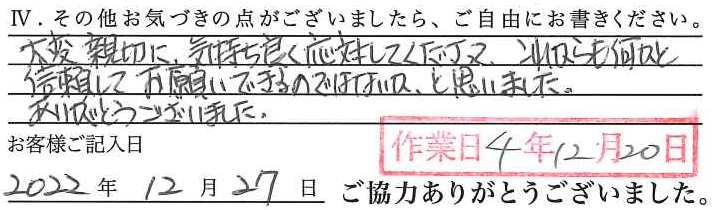 Ⅳ.その他お気づきの点がございましたら、ご自由にお書きください。
大変 親切に、気持ち良く応対してくださって、これからも何かと
信頼して お願いできるのではないか、と思いました。
ありがとうございました。
お客様ご記入日
作業日4年12月20日
2022年 12月 27日 ご協力ありがとうございました。